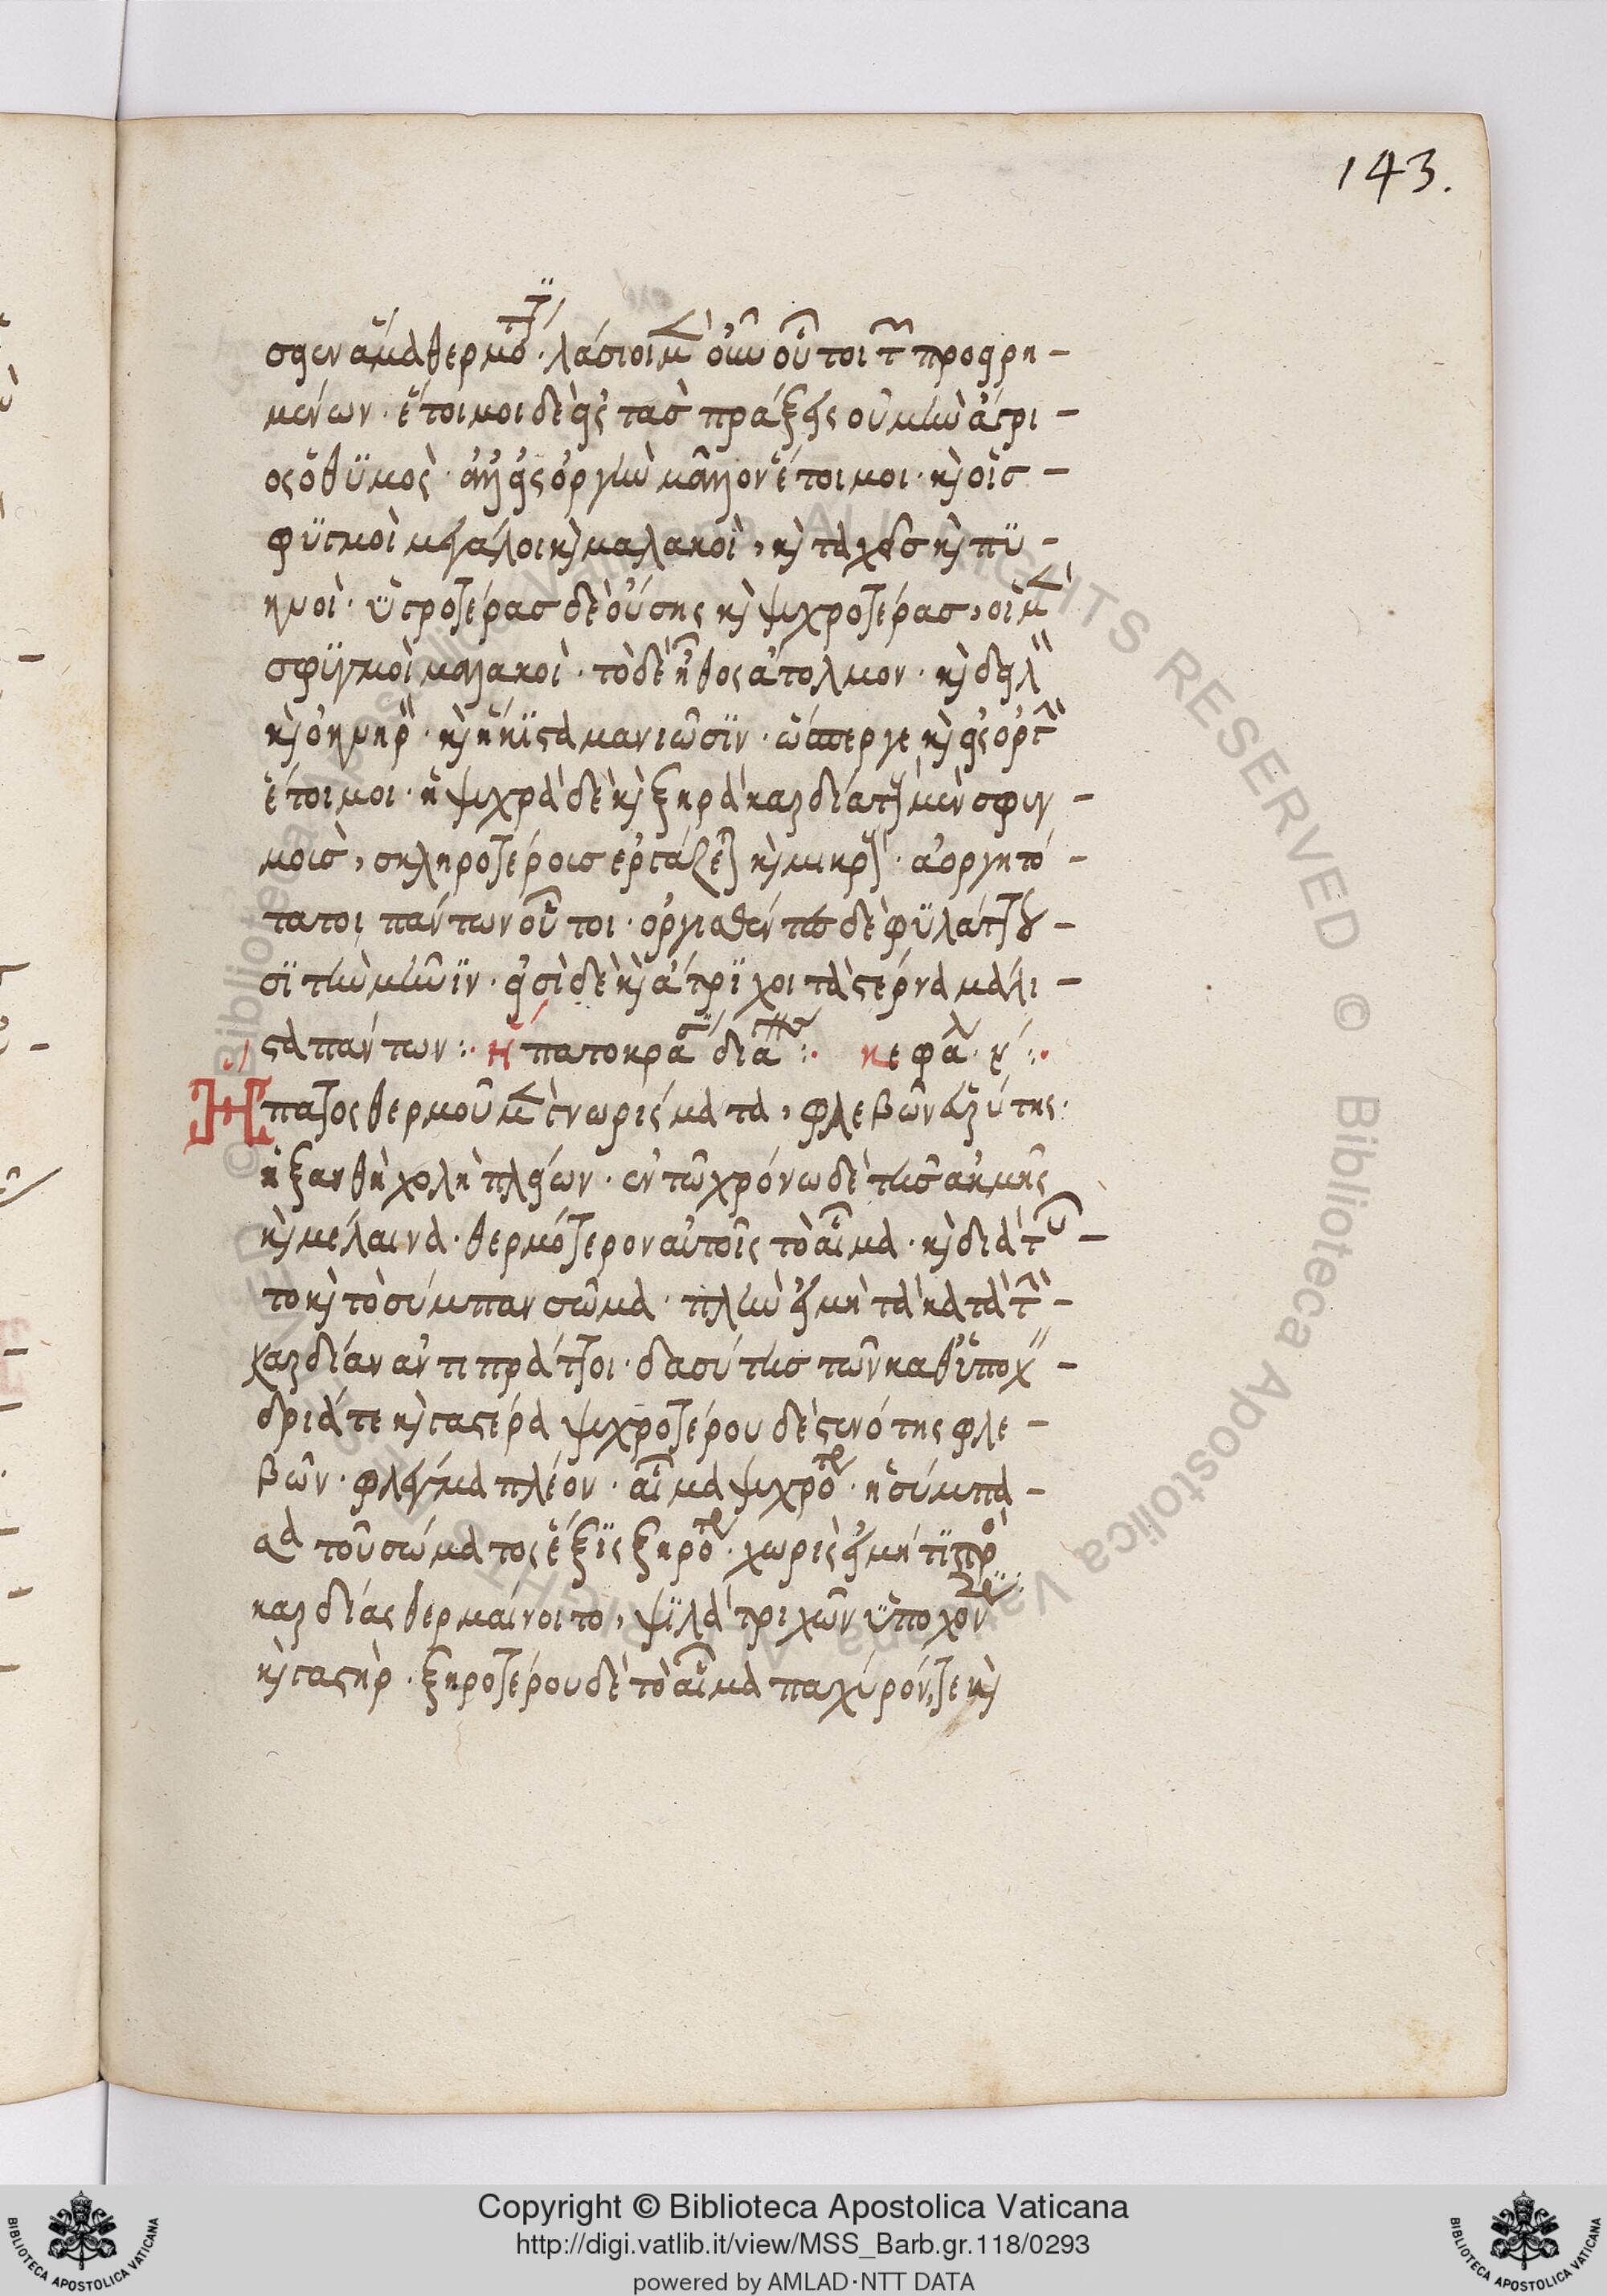 143.
σειεν ἅμα θερμότητι. λάσιοι μὲν οὖν οὗτοι τῶν προειρη-
μένων. ἕτοιμοι δὲ εἰς τὰς πράξεις οὐ μὴν ἄγρι-
ος ὁ θϋμὸς. ἀλλ' εἰς ὀργὴν μᾶλλον ἕτοιμοι. καὶ οἱ σ-
φϋγμοὶ μεγάλοι καὶ μαλακοὶ, καὶ ταχεῖς καὶ πϋ-
κνοὶ. ὑγροτέρας δὲ οὔσης καὶ ψυχροτέρας, οἱ μὲν
σφϋγμοὶ μαλακοὶ. τὸ δὲ ἦθος ἄτολμον. καὶ δειλὸν
καὶ ὀκνηρὸν. καὶ ἥκιστα μανιῶσϊν. ὥσπερ γε καὶ εἰς ὀργὴν
ἕτοιμοι. ἡ ψυχρὰ δὲ καὶ ξηρὰ καρδία τοῖς μὲν σφυγ-
μοῖς, σκληροτέροις ἐργάζεται καὶ μικροῖς. ἀοργητό-
τατοι πάντων οὗτοι. ὀργισθέντες δὲ φϋλάττου-
σϊ τὴν μῆνϊν. εἰσὶ δὲ καὶ ἄτρϊχοι τὰ στέρνα μάλι-
στα πάντων:· ἥπατο κράσεως διάγνωσις:· κεφάλ. ξ:·
Ἥπατος θερμοῦ μὲν γνωρίσματα, φλεβῶν εὐρύτης.
ἡ ξανθὴ χολὴ πλείων. ἐν τῷ χρόνω δὲ τῆς ἀκμῆς
καὶ μέλαινα. θερμότερον αὐτοῖς τὸ αἷμα. καὶ διὰ τοῦ-
το καὶ τὸ σύμπαν σῶμα. πλὴν εἰ μὴ τὰ κατὰ τὴν-
καρδίαν ἀντιπράττοι. δασύτης τῶν καθ' ὑποχόν-
δριά τε καὶ γαστέρα ψυχροτέρου δὲ στενότης φλε-
βῶν. φλέγμα πλέον. αἷμα ψυχρότερον. ἡ σύμπα-
σα τοῦ σώματος ἕξϊς ξηροτέρα. χωρὶς εἰ μή τϊ πρὸς
καρδίας θερμαίνοιτο, ψϊλὰ τριχῶν ϋποχόνδρια
καὶ γαστὴρ. ξηροτέρου δὲ τὸ αἷμα παχύρόν, τε καὶ
Copyright © Biblioteca Apostolica Vaticana
http://digi.vatlib.it/view/MSS_Barb.gr.118/0293
powered by AMLAD·NTT DATA
BIBLIOTECA APOSTOLICA VATICANA
BIBLIOTECA APOSTOLICA VATICANA